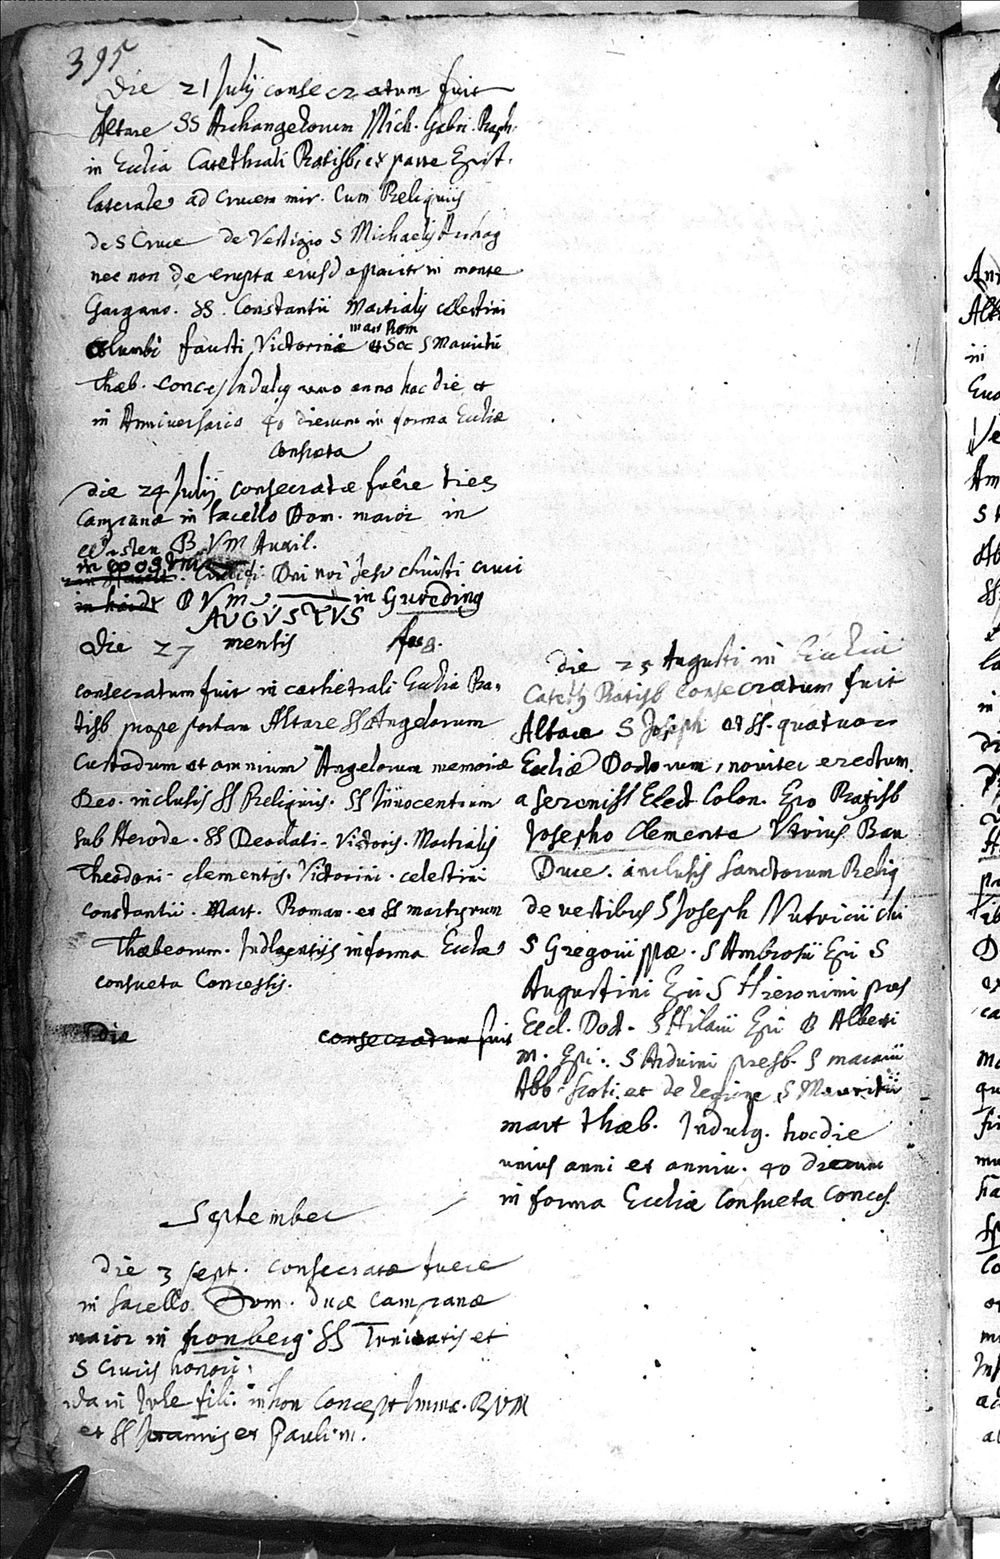 395
Die 21 Julij consecratum fuit
Altare SS Archangelorum Mich. Gabri. Raph.
in Ecclia Cathethrali Ratisb. ex parte Epist.
laterale ad Crucem mir. Cum Reliquiis
de S Cruce de Vestigio S Michaelis Archag
nec non de crypta eiusd apparit in monte
Gargano. SS. Constantii Martialis celestini
Columbi fausti Victorini mart Rom et Soc S Mauritii
Thæb. conces Indulg uno anno hac die et
in Anniversario 40 dierum in forma Eccliæ
consueta
Die 24 Julij consecratæ fuêre tres
Campanæ in sacello Dom. maior in
B V M Auxil.
Crucifi. Dni nri Jesu christi cruci
in heidt B V M in Gunding
AUGUSTUS
Die 27 mentis
consecratum fuit in cathetrali Ecclia Ra-
tisb prope portam Altare SS Angelorum
Custodum et omnium Angelorum memoriæ
Deo. inclusis SS Reliquiis. SS Innocentium
sub Herode. SS Deodati. Victoris. Martialis
Theodori. clementis. Victorini. celestini
constantii. Mart. Roman. et SS martyrum
Thæbeorum. Indlgentijs in forma Ecclæ
consueta Concessis.
Die consecratum fuit
September
Die 3 sept. consecratæ fuere
in sacello Dom. duæ campanæ
maior in fronberg SS Trinitatis et
S Crucis honori
in hon Concept Imma. B V M
et SS Joannis et Pauli m.
Die 25 Augusti in Ecclia
Cateth Ratisb Consecratum fuit
Altare S Joseph et SS. quatuor
Eccliæ Doctorum, noviter erectum
a serenissi Elect Colon. Epo Ratisb
Josepho Clemente Utrius Bav
Duce. inclusis Sanctorum Reliq
de vestibus S Joseph Nutricii chi
S Gregorii ppæ. S Ambrosii Epi S
Augustini Epi S Hieronimi pres
Eccl. Doct. S Hilarii Epi B Alberti
m. Epi. S Arduini presb. S macarii
Abb. Scoti. et de legione S Mauritii
mart thæb. Indulg. hoc die
unius anni et anniv. 40 dierum
in forma Eccliæ Consueta Conces